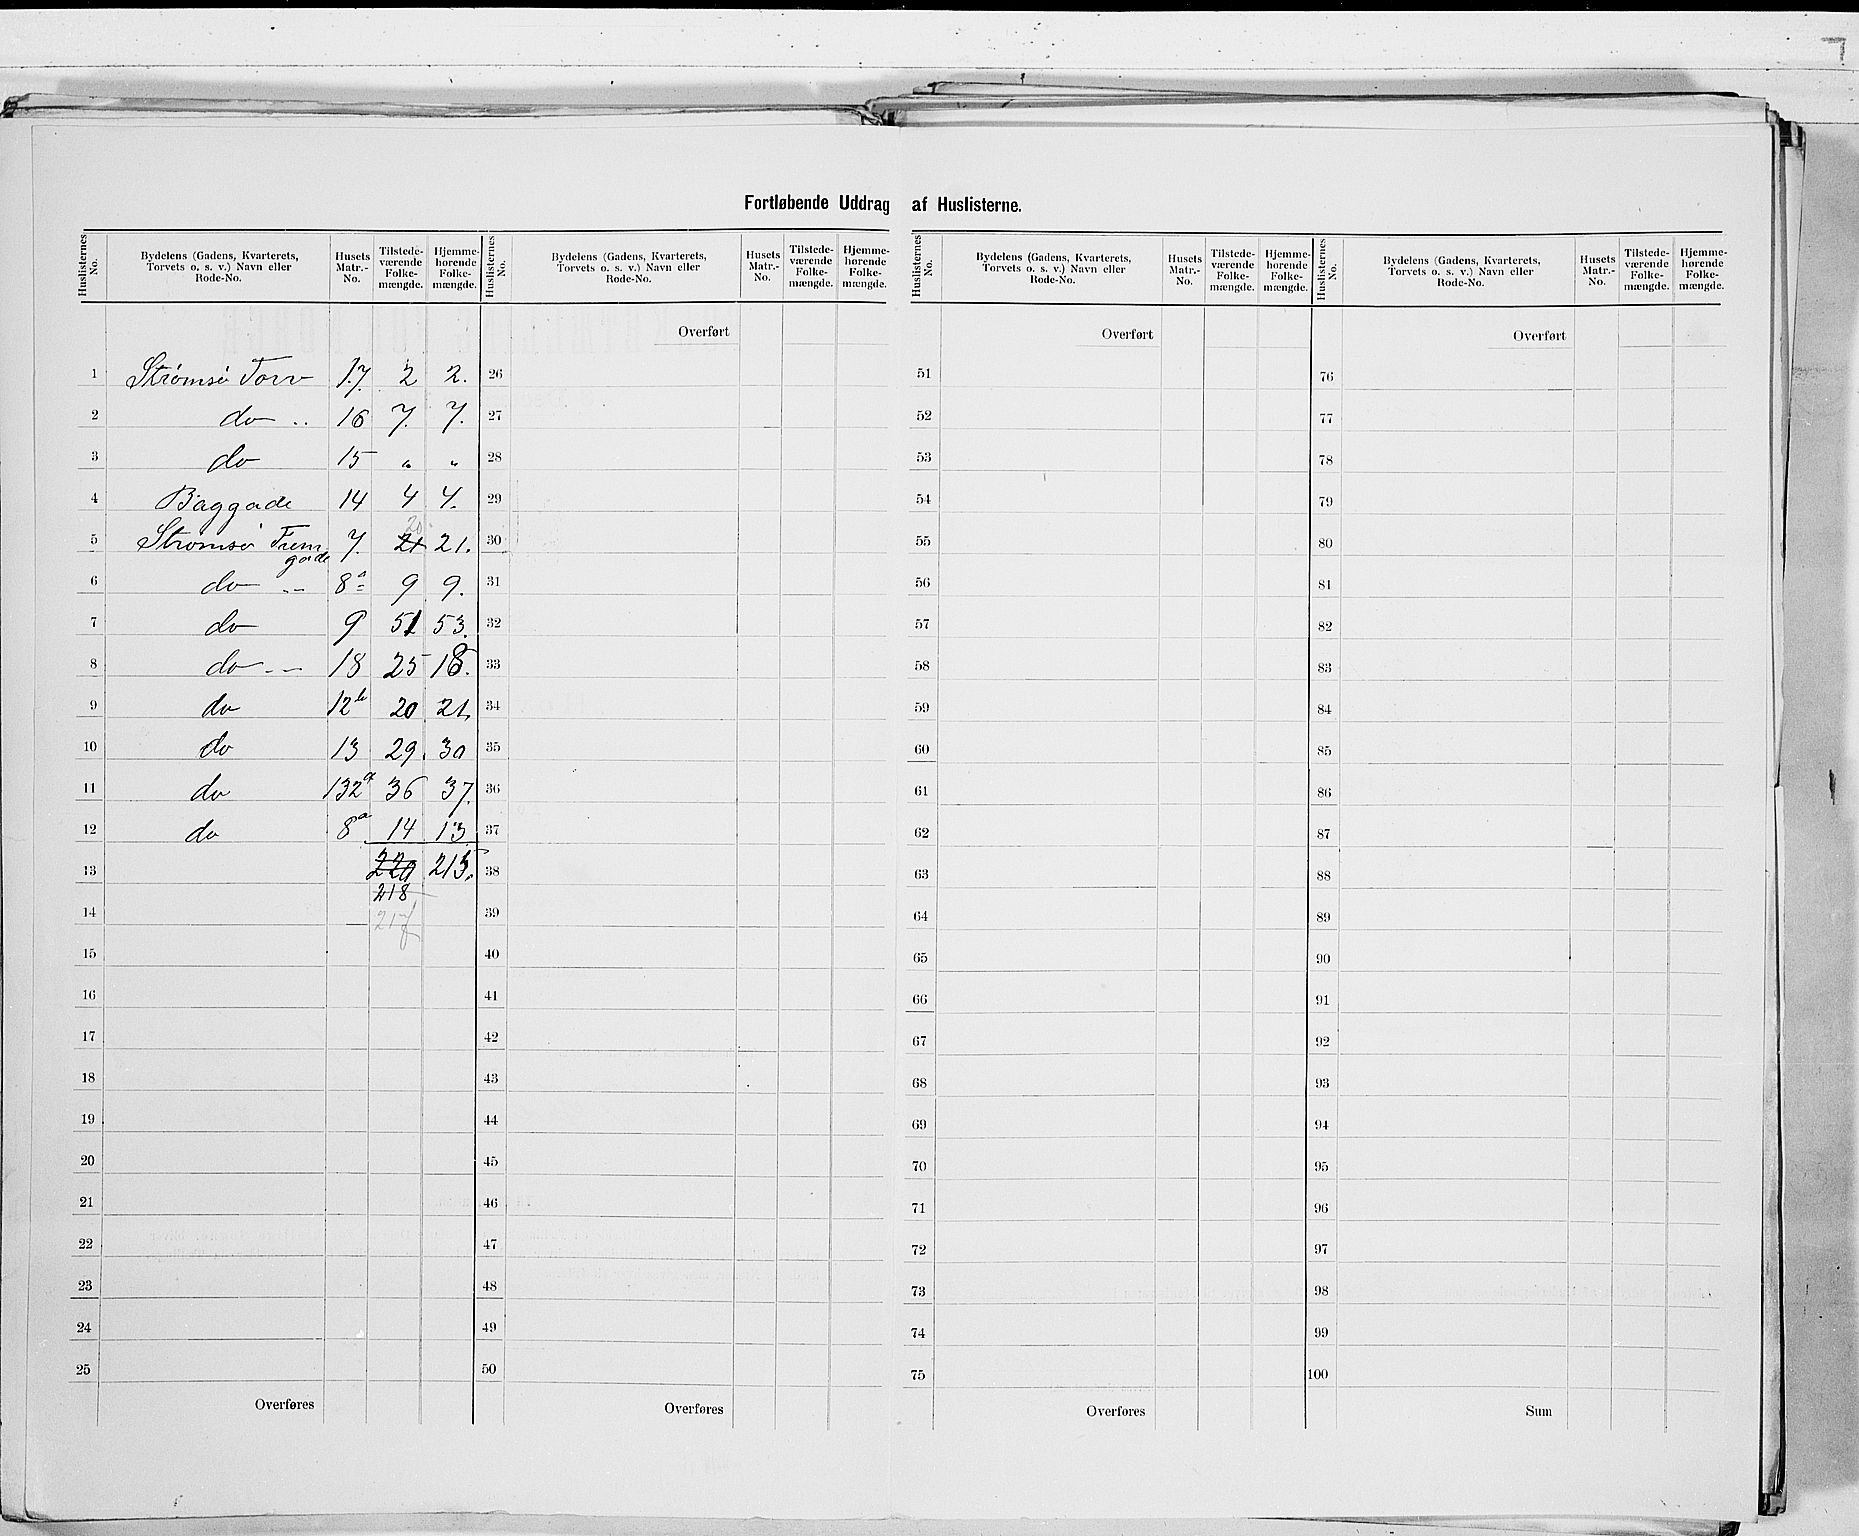 Fortløbende Uddrag af Huslisterne.
Huslisternes No. | Bydelens (Gadens, Kvarterets, Torvets o. s. v.) Navn eller Rode-No. | Husets Matr.-No. | Tilstedeværende Folkemængde. | Hjemmehørende Folkemængde.
1 Strømsø Torv 17. 2 2.
2 do .. 16 7. 7.
3 do 15 " "
4 Baggade 14 4 4.
20
5 Strømsø Frem 7. 21 21.
gade
6 do -- 8a 9 9.
7 do 9 51 53.
8 do -- 18 25 18.
9 do 12b 20 21.
10 do 13 29. 30
11 do 132a 36 37.
12 do 8a 14 13
13 220 215.
218
14 217
15
16
17
18
19
20
21
22
23
24
25
Overføres
Huslisternes No. | Bydelens (Gadens, Kvarterets, Torvets o. s. v.) Navn eller Rode-No. | Husets Matr.-No. | Tilstedeværende Folkemængde. | Hjemmehørende Folkemængde.
Overført
26
27
28
29
30
31
32
33
34
35
36
37
38
39
40
41
42
43
44
45
46
47
48
49
50
Overføres
Huslisternes No. | Bydelens (Gadens, Kvarterets, Torvets o. s. v.) Navn eller Rode-No. | Husets Matr.-No. | Tilstedeværende Folkemængde. | Hjemmehørende Folkemængde.
Overført
51
52
53
54
55
56
57
58
59
60
61
62
63
64
65
66
67
68
69
70
71
72
73
74
75
Overføres
Huslisternes No. | Bydelens (Gadens, Kvarterets, Torvets o. s. v.) Navn eller Rode-No. | Husets Matr.-No. | Tilstedeværende Folkemængde. | Hjemmehørende Folkemængde.
Overført
76
77
78
79
80
81
82
83
84
85
86
87
88
89
90
91
92
93
94
95
96
97
98
99
100
Sum